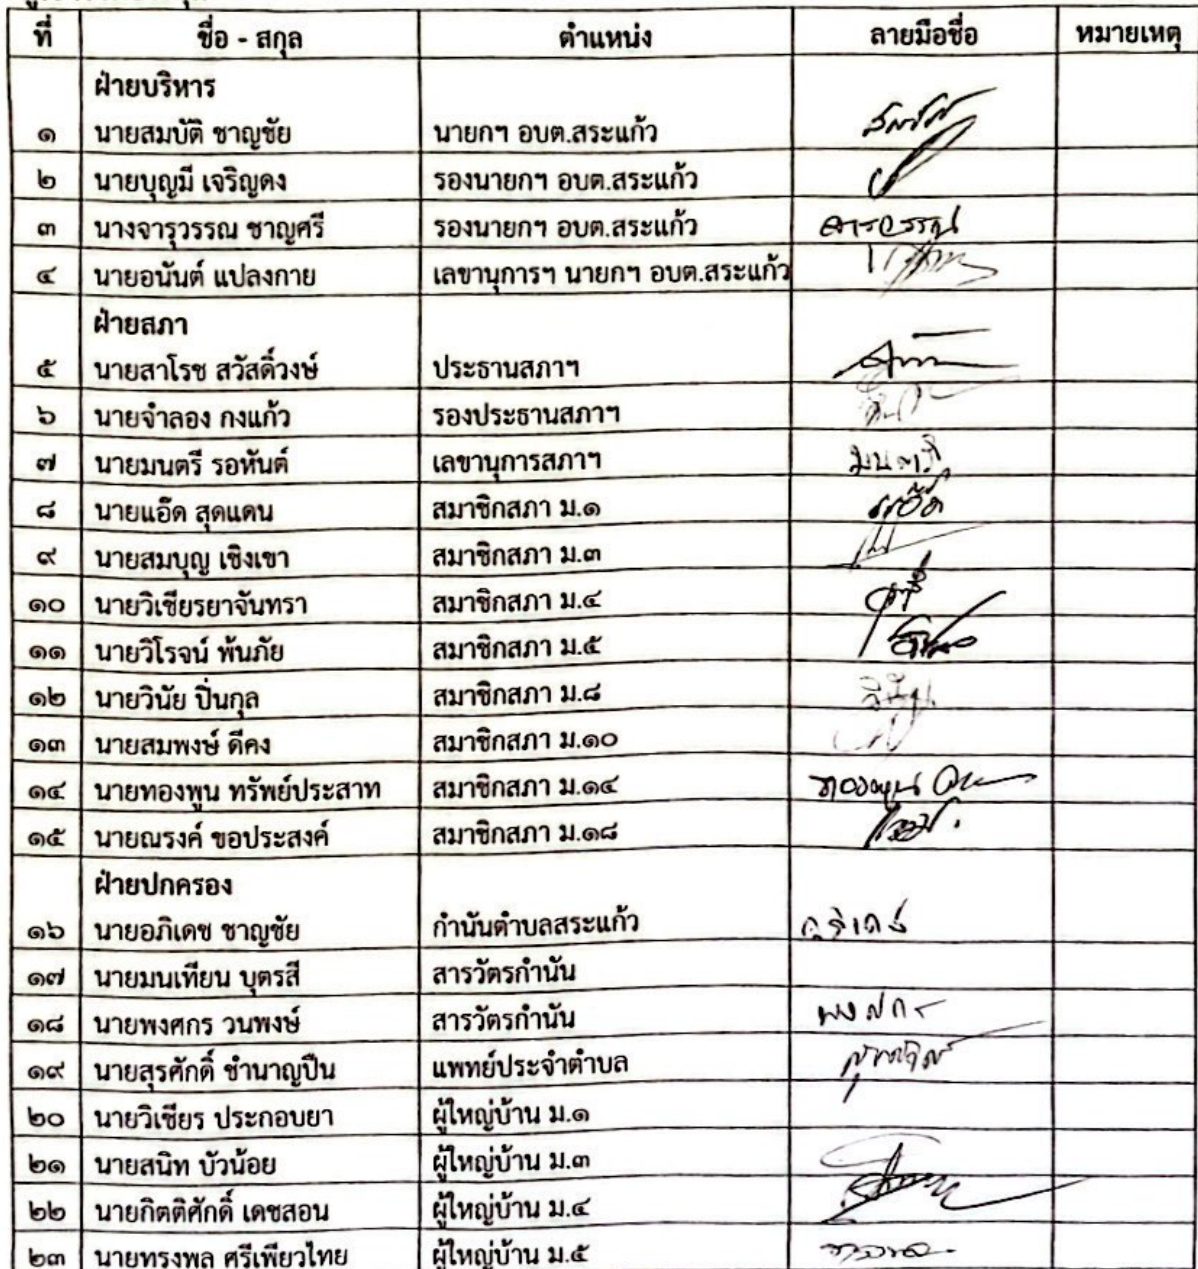 ที่ ชื่อ - สกุล ตำแหน่ง ลายมือชื่อ หมายเหตุ
ฝ่ายบริหาร
๑ นายสมบัติ ชาญชัย นายกฯ อบต.สระแก้ว
๒ นายบุญมี เจริญดง รองนายกฯ อบต.สระแก้ว
๓ นางจารุวรรณ ชาญศรี รองนายกฯ อบต.สระแก้ว จารุวรรณ
๔ นายอนันต์ แปลงกาย เลขานุการฯ นายกฯ อบต.สระแก้ว
ฝ่ายสภา
๕ นายสาโรช สวัสดิ์วงษ์ ประธานสภาฯ
๖ นายจำลอง กงแก้ว รองประธานสภาฯ
๗ นายมนตรี รอหันต์ เลขานุการสภาฯ มนตรี
๘ นายแอ๊ด สุดแดน สมาชิกสภา ม.๑ แอ๊ด
๙ นายสมบุญ เชิงเขา สมาชิกสภา ม.๓
๑๐ นายวิเชียรยาจันทรา สมาชิกสภา ม.๔
๑๑ นายวิโรจน์ พ้นภัย สมาชิกสภา ม.๕
๑๒ นายวินัย ปิ่นกุล สมาชิกสภา ม.๘ วินัย
๑๓ นายสมพงษ์ ดีคง สมาชิกสภา ม.๑๐
๑๔ นายทองพูน ทรัพย์ประสาท สมาชิกสภา ม.๑๔ ทองพูน
๑๕ นายณรงค์ ขอประสงค์ สมาชิกสภา ม.๑๘
ฝ่ายปกครอง
๑๖ นายอภิเดช ชาญชัย กำนันตำบลสระแก้ว อภิเดช
๑๗ นายมนเทียน บุตรสี สารวัตรกำนัน
๑๘ นายพงศกร วนพงษ์ สารวัตรกำนัน พงศกร
๑๙ นายสุรศักดิ์ ชำนาญปืน แพทย์ประจำตำบล สุรศักดิ์
๒๐ นายวิเชียร ประกอบยา ผู้ใหญ่บ้าน ม.๑
๒๑ นายสนิท บัวน้อย ผู้ใหญ่บ้าน ม.๓
๒๒ นายกิตติศักดิ์ เดชสอน ผู้ใหญ่บ้าน ม.๔
๒๓ นายทรงพล ศรีเพียวไทย ผู้ใหญ่บ้าน ม.๕ ทรงพล